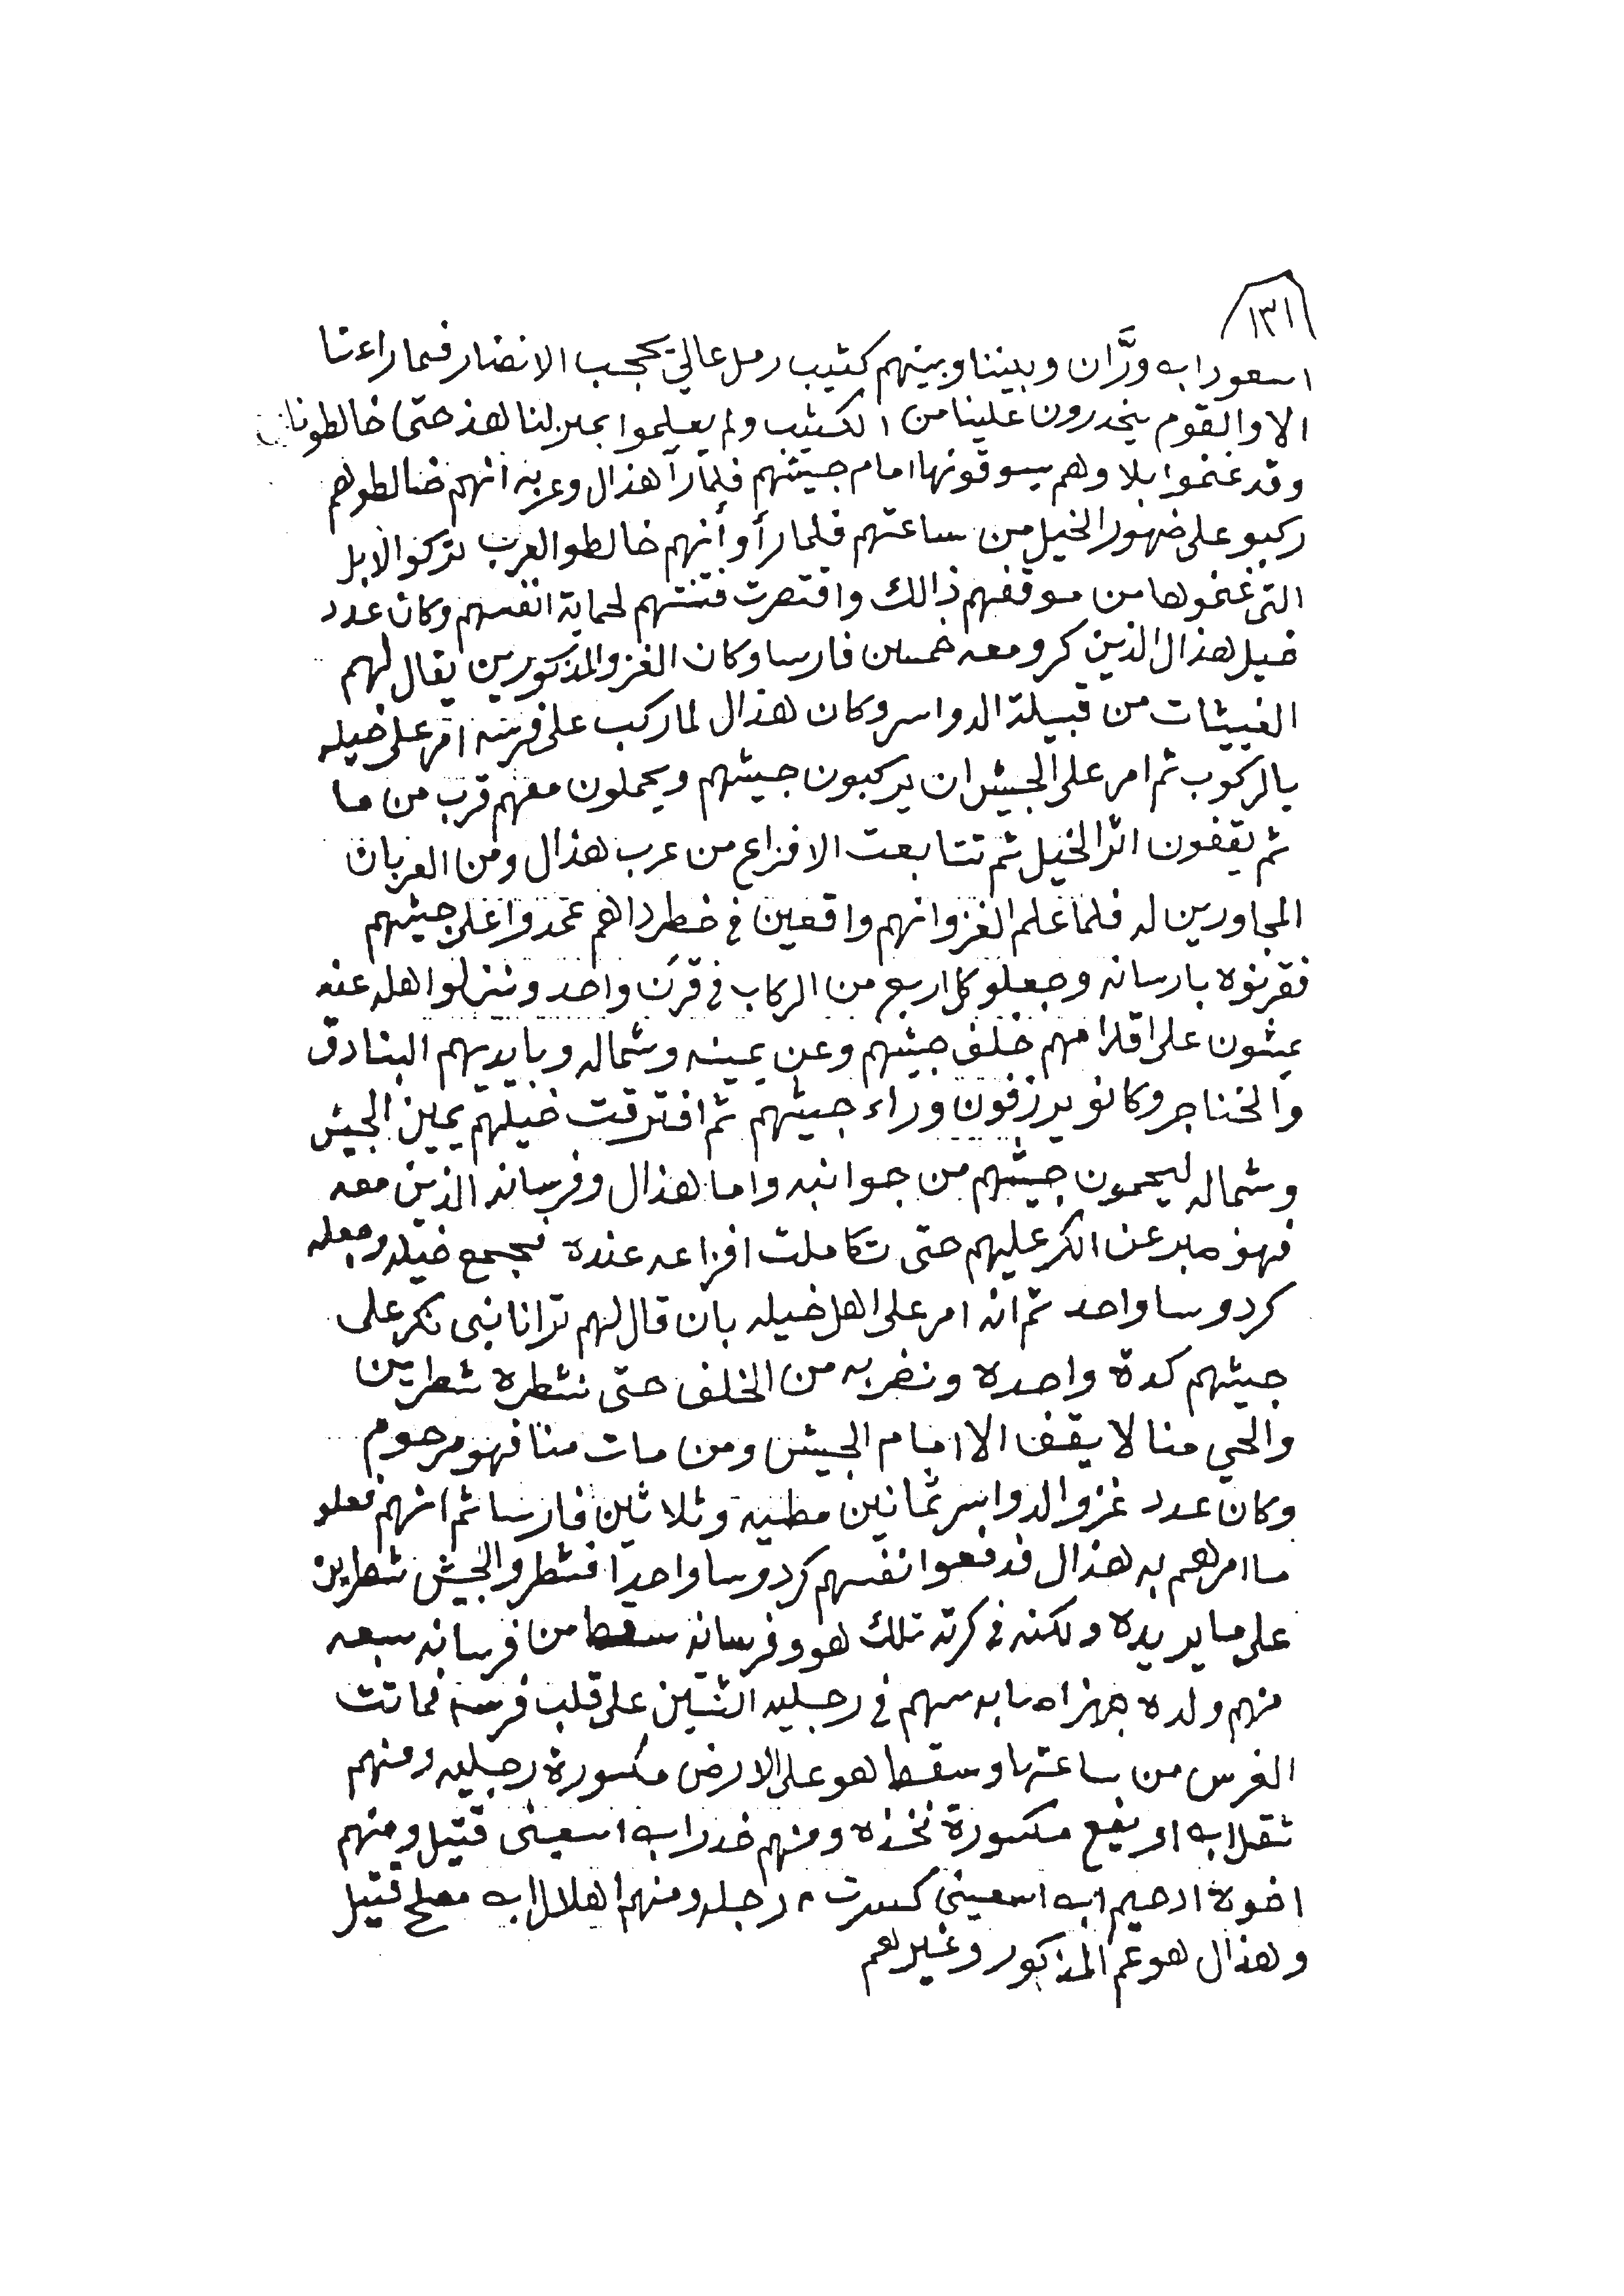 ١٣١
اسعود ابن ورَّان وبيننا وبينهم كثيب رمل عالي يحجب الانضار فما راءتنا
الا والقوم ينحدرون علينا من الكثيب ولم يعلموا بمنزلنا هذا حتى خالطونا
وقد غنموا بلا وهم يسوقونها امام جيشهم فلما رآ هذال وعربه انهم خالطوهم
ركبو على ضهور الخيل من ساعتهم فلما رأو أنهم خالطو العرب تركو الابل
التي غنموها من موقفهم ذالك واقتصرت فئتهم لحماية انفسهم وكان عدد
خيل هذال الذين كرو معه خمسين فارسا وكان الغزو المذكورين يقال لهم
الغييثات من قبيلة الدواسر وكان هذال لما ركب على فرسه امر على خيله
بالركوب ثم امر على الجيش ان يركبون جيشهم ويحملون معهم قرب من ما
ثم يقفون اثر الخيل ثم تتابعت الافزاع من عرب هذال ومن العربان
المجاورين له فلما علم الغزو انهم واقعين في خطر داهم عمدوا على جيشهم
فقرنوه بارسانه وجعلو كل اربع من الركاب في قرن واحد ونزلوا اهله عنه
يمشون على اقدامهم خلف جيشهم وعن يمينه وشماله وبايديهم البنادق
والخناجر وكانو يرزفون وراء جيشهم ثم افترقت خيلهم يمين الجيش
وشماله ليحمون جيشهم من جوانبه واما هذال وفرسانه الذين معه
فهو صبر عن الكر عليهم حتى تكاملت افزاعه عنده فجمع خيله وجعله
كردوسا واحد ثم انه امر على اهل خيله بان قال لهم ترانا نبي نكر على
جيشهم كدة واحده ونضربه من الخلف حتى نشطره شطرين
والحي منا لا يقف الا امام الجيش ومن مات منا فهو مرحوم
وكان عدد غزو الدواسر ثمانين مطيه وثلاثين فارسا ثم انهم فعلو
ما امرهم به هذال فدفعوا انفسهم كردوسا واحدا فشطرو الجيش شطرين
على ما يريده ولكنه في كرته تلك هو وفرسانه سقط من فرسانه سبعه
منهم ولده جهزاه سهم في رجليه الثنتين على قلب فرسه فماتت
الفرس من ساعتها وسقط هو على الارض مكسورة رجليه ومنهم
ثقل ابن ارفيع مكسورة فخذه ومنهم خدر ابن اسعيني قتيل ومنهم
اخوة ادحيم ابن اسعيني كسرت رجله ومنهم اهلال ابن مصلح قتيل
وهذال هو عم المذكور وغيرهم